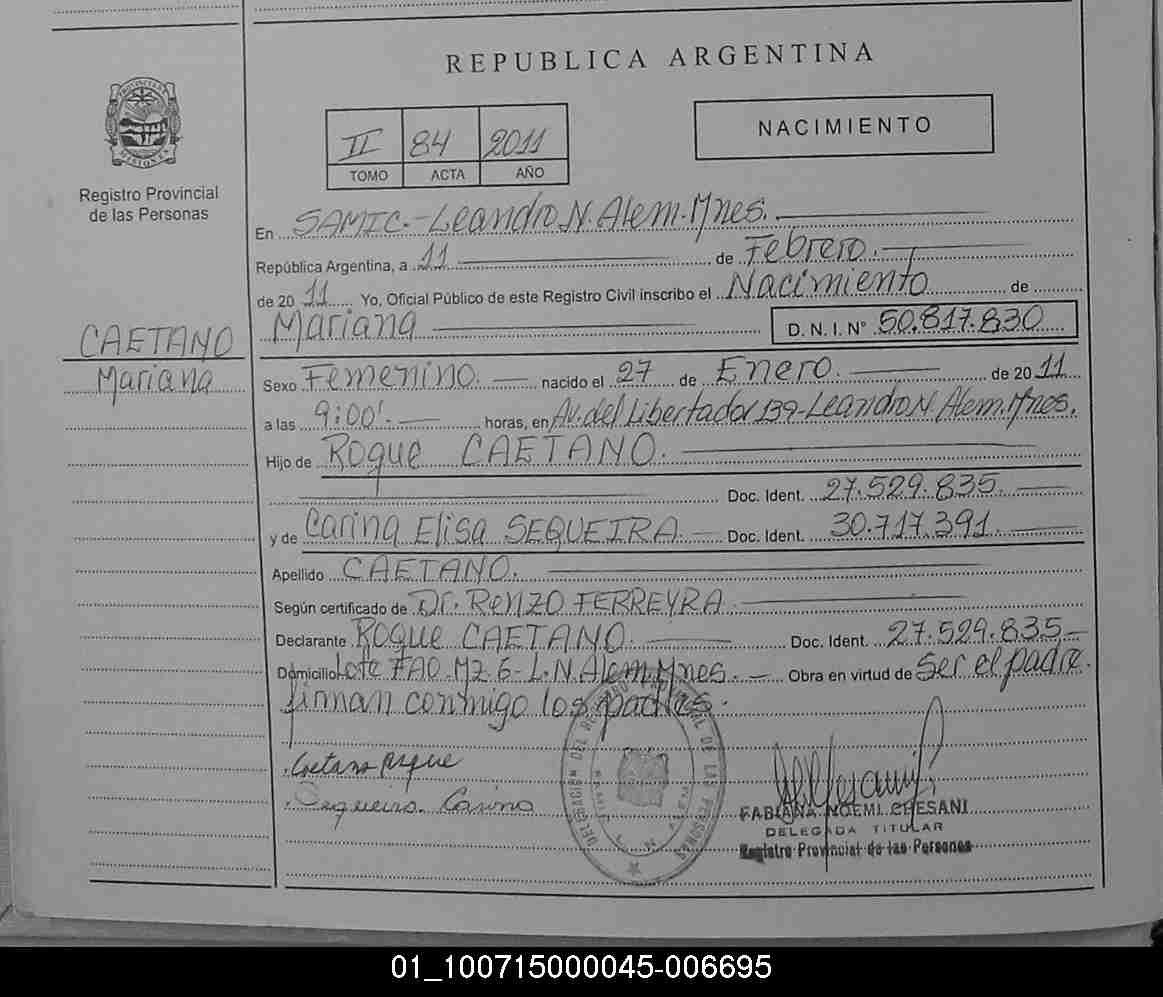 REPUBLICA ARGENTINA
PROVINCIA DE MISIONES
Registro Provincial
de las Personas
II 84 2011
TOMO ACTA AÑO
NACIMIENTO
En SAMIC.-Leandro N. Alem.Mnes.
República Argentina, a 11 de Febrero.
de 2011 Yo, Oficial Público de este Registro Civil inscribo el Nacimiento de
Mariana D. N. I. N° 50.817.830
CAETANO
Mariana
Sexo Femenino. nacido el 27 de Enero. de 2011
a las 9:00'. horas, en Av. del Libertador 139-Leandro N. Alem.Mnes.
Hijo de Roque CAETANO.
Doc. Ident. 27.529.835.
y de Carina Elisa SEQUEIRA. Doc. Ident. 30.717.391.
Apellido CAETANO.
Según certificado de Dr. Renzo FERREYRA.
Declarante Roque CAETANO. Doc. Ident. 27.529.835
Domicilio Lote Mz 6-L.N.Alem.Mnes. Obra en virtud de Ser el padre.
firman conmigo los padres.
Caetano Roque
Sequeira Carina
DELEGACION DEL REGISTRO PROVINCIAL DE LAS PERSONAS
FABIANA NOEMI CHESANI
DELEGADA TITULAR
Registro Provincial de las Personas
01_100715000045-006695